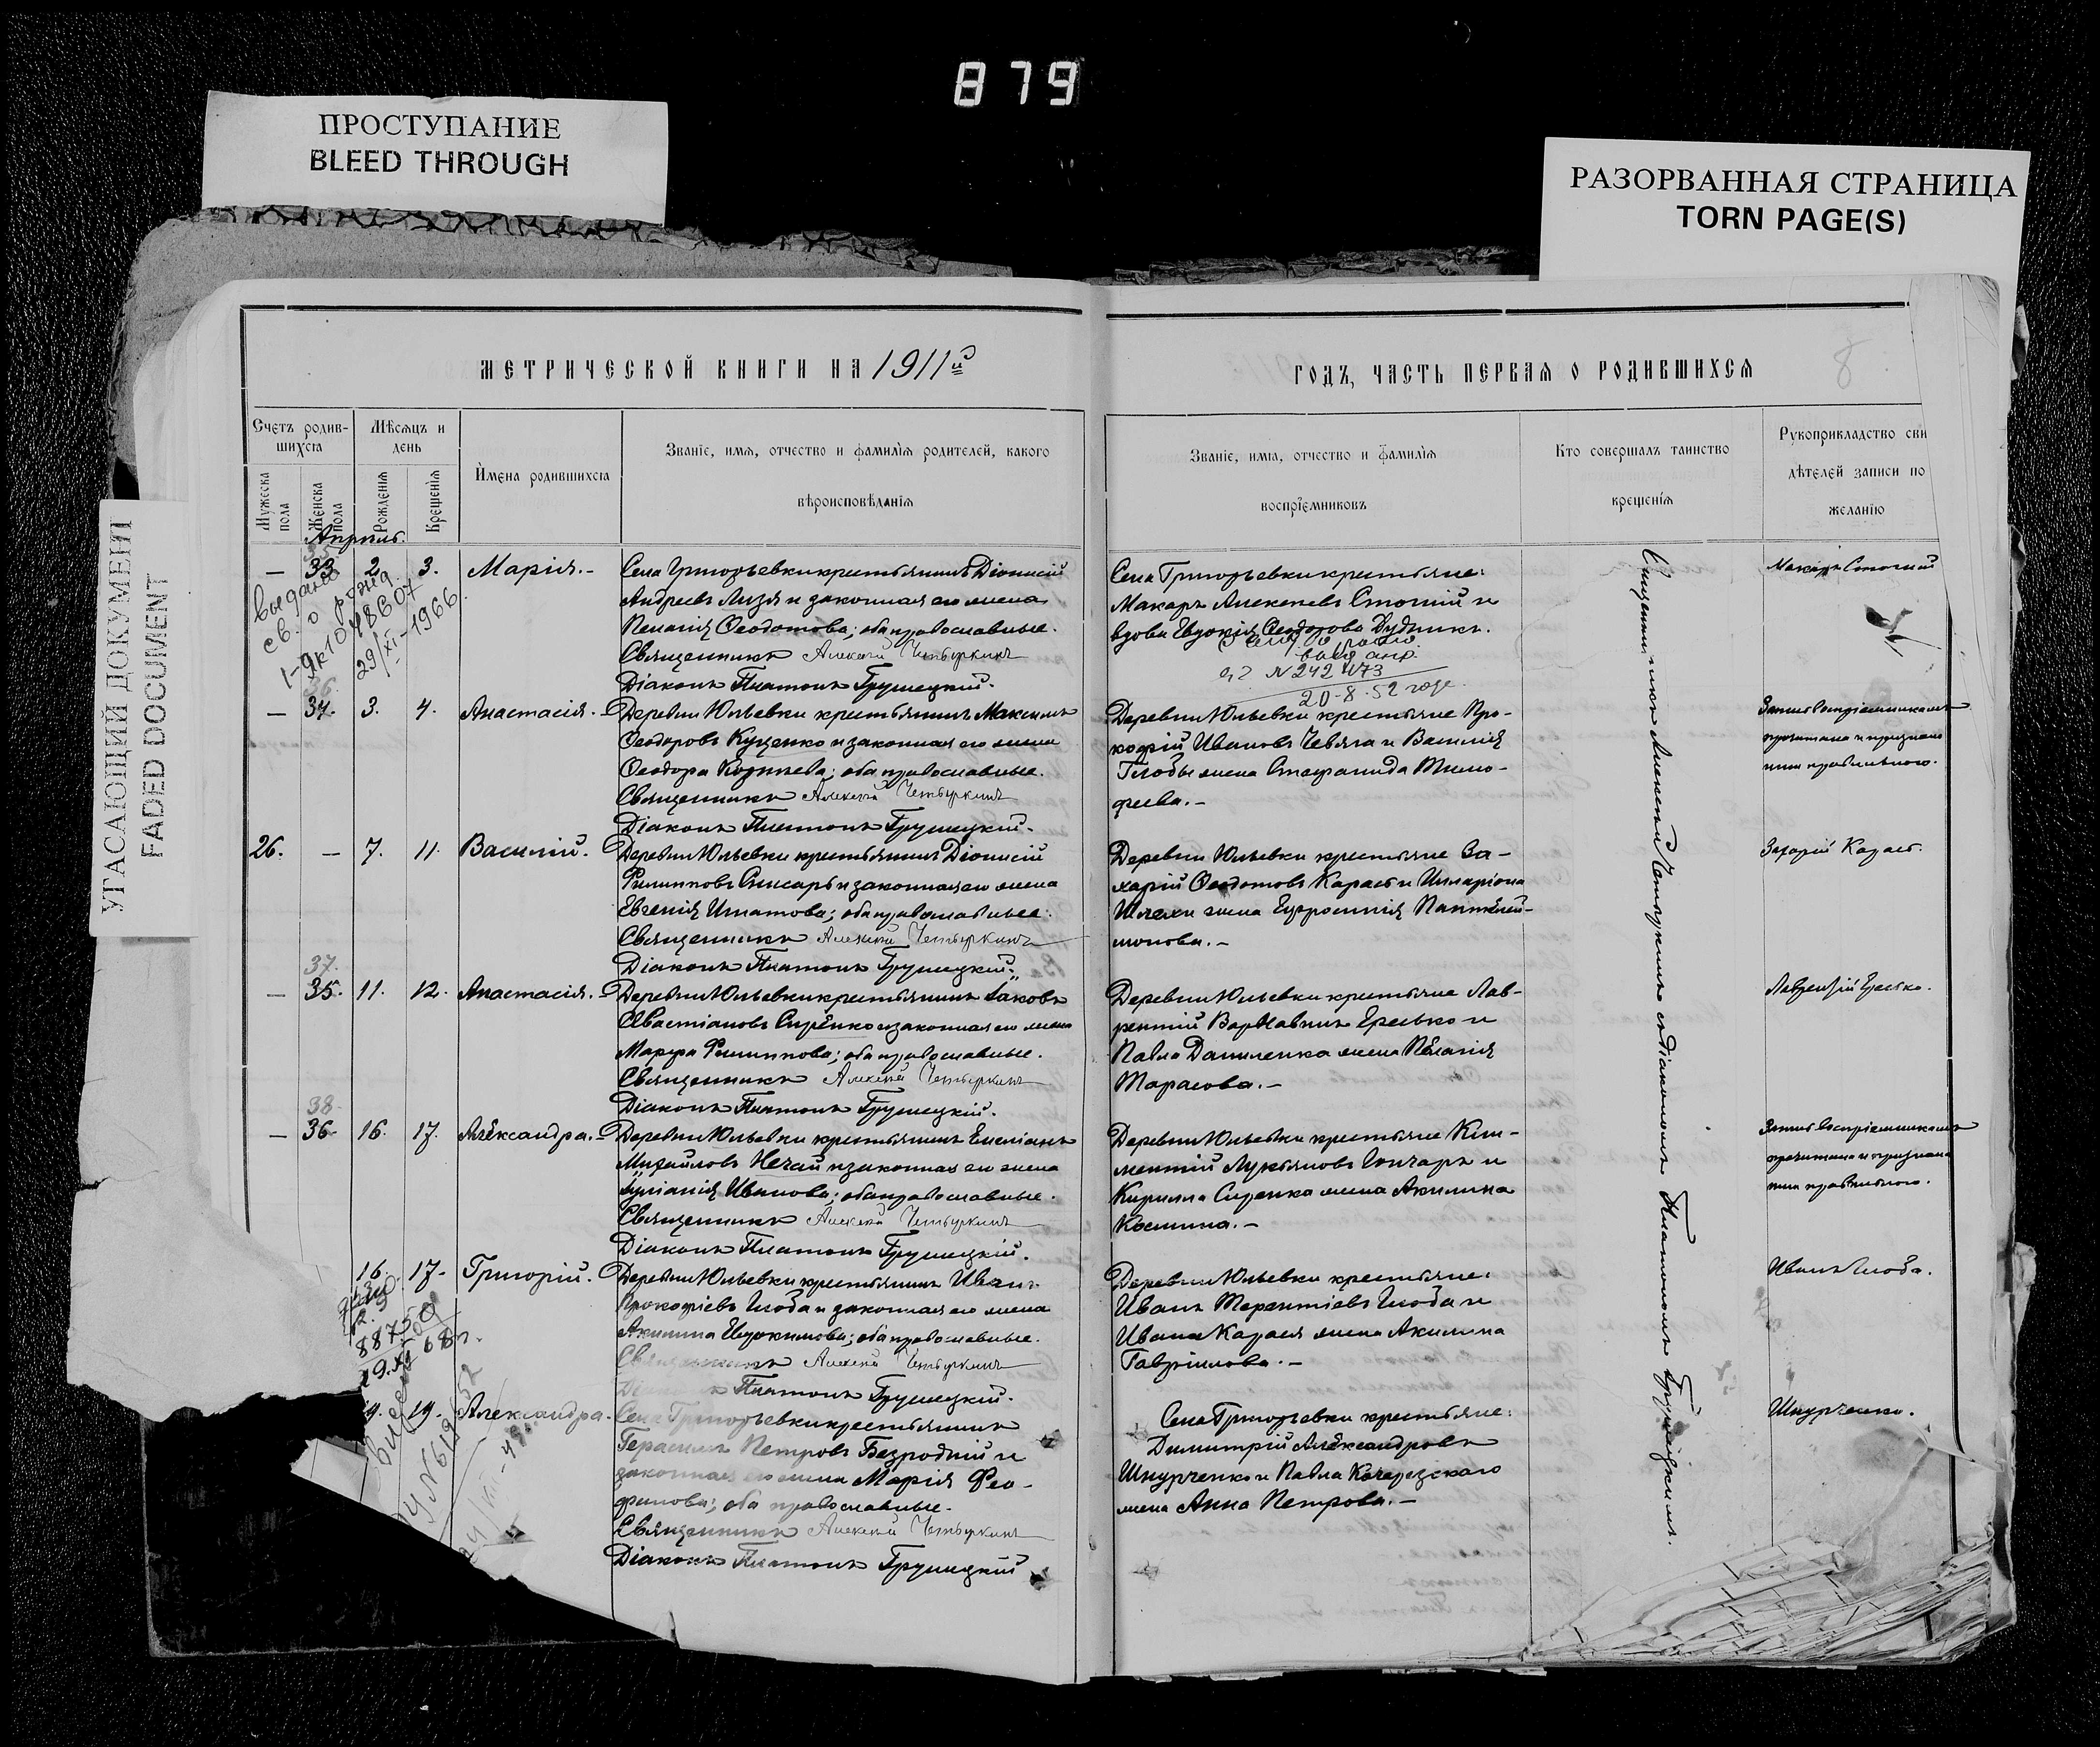 879
ПРОСТУПАНИЕ
BLEED THROUGH
РАЗОРВАННАЯ СТРАНИЦА
TORN PAGE(S)
УГАСАЮЩИЙ ДОКУМЕНТ
FADED DOCUMENT
МЕТРИЧЕСКОЙ КНИГИ НА 1911й
ГОДЪ, ЧАСТЬ ПЕРВАЯ О РОДИВШИХСЯ
8
Счетъ родив-
шихся
Мѣсяцъ и
день
Мужеска
пола
Женска
пола
Рожденія
Крещенія
Имена родившихся
Званіе, имя, отчество и фамилія родителей, какого
вѣроисповѣданія
Званіе, имя, отчество и фамилія
воспріемниковъ
Кто совершалъ таинство
крещенія
Рукоприкладство сви
дѣтелей записи по
желанію
Апрѣль.
— 33 2. 3. Марія.-
Села Григорьевки крестьянинъ Діонисій
Андреевъ Лизя и законная его жена
Пелагія Ѳеодотова; оба православные.
Священникъ Алексѣй Четыркинъ
Діаконъ Платонъ Грушецкій.
выдано
св. о рожд.
29/XI-1966
Села Григорьевки крестьяне:
Макаръ Алексѣевъ Стогній и
вдова Евдокія Ѳеодорова Дудникъ.
N 242473
20-8-52 года.
Макаръ Стогній
36.
— 34. 3. 4. Анастасія.-
Деревни Юльевки крестьянинъ Максимъ
Ѳеодоровъ Куценко и законная его жена
Ѳеодора Козьмева; оба православные.
Священникъ Алексѣй Четыркинъ
Діаконъ Платонъ Грушецкій.
Деревни Юльевки крестьяне Про-
кофій Ивановъ Чевяга и Василія
Глобы жена Стефанида Тимо-
феева.-
Запись воспріемникамъ
прочитана и признана
ими правильною.
26. — 7. 11. Василій.
Деревни Юльевки крестьянинъ Діонисій
Филипповъ Слисарь и законная его жена
Евгенія Игнатова; оба православные.
Священникъ Алексѣй Четыркинъ
Діаконъ Платонъ Грушецкій.
Деревни Юльевки крестьяне За-
харій Ѳеодотовъ Карась и Илларіона
жена Евфросинія Пантелей-
монова.-
Захарій Карась.
37.
— 35. 11. 12. Анастасія.-
Деревни Юльевки крестьянинъ Іаковъ
Севастіановъ Сиренко и законная его жена
Марфа Филиппова; оба православные.
Священникъ Алексѣй Четыркинъ
Діаконъ Платонъ Грушецкій.
Деревни Юльевки крестьяне Лав-
рентій Варлавинъ Ересько и
Павла Даниленка жена Пелагія
Тарасова.-
Лаврентій Ересько.
38.
— 36. 16. 17. Александра.-
Деревни Юльевки крестьянинъ Емеліанъ
Михайловъ Нечай и законная его жена
Іуліанія Иванова; оба православные.
Священникъ Алексѣй Четыркинъ
Діаконъ Платонъ Грушецкій.
Деревни Юльевки крестьяне Кли-
ментій Лукьяновъ Гончаръ и
Кирилла Сиренка жена Акилина
Космина.-
Запись воспріемникамъ
прочитана и признана
ими правильною.
16. 17. Григорій.
Деревни Юльевки крестьянинъ Иванъ
Прокофіевъ Глоба и законная его жена
Акилина Евдокимова; оба православные.
Священникъ Алексѣй Четыркинъ
Діаконъ Платонъ Грушецкій.
Деревни Юльевки крестьяне:
Иванъ Терентіевъ Глоба и
Ивана Карася жена Акилина
Гавріилова.-
Иванъ Глоба.
19. Александра.
Села Григорьевки крестьянинъ
Герасимъ Петровъ Безродный и
законная его жена Марія Фео-
филова; оба православные.
Священникъ Алексѣй Четыркинъ
Діаконъ Платонъ Грушецкій
Села Григорьевки крестьяне:
Димитрій Александровъ
Шнурченко и Павла Кочерезскаго
жена Анна Петрова.-
Шнурченко.
Священникъ Алексѣй Четыркинъ съ діакономъ Платономъ Грушецкимъ.